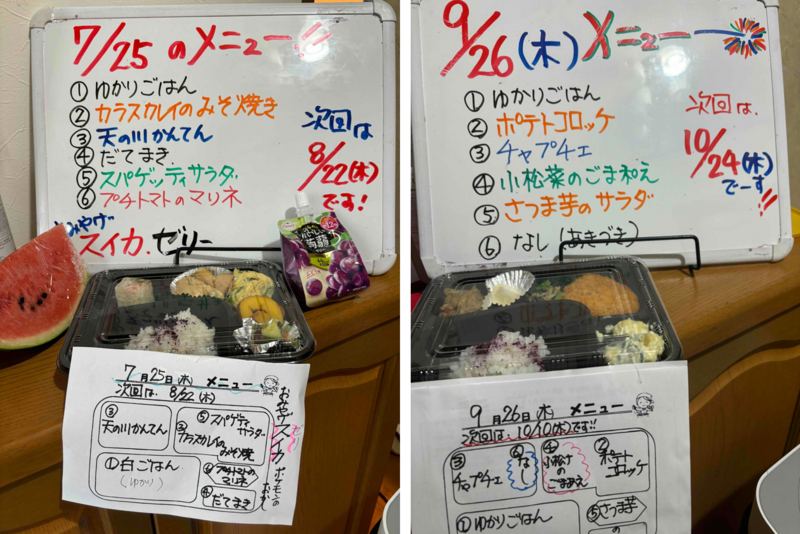 7/25のメニュー!!
①ゆかりごはん
②カラスカレイのみそ焼き
③天の川かんてん
④だてまき
⑤スパゲッティサラダ
⑥プチトマトのマリネ
次回は
8/22(木)
です!
おみやげ
スイカ、ゼリー
蒟蒻
7月25日(木) メニュー
次回は、8/22(木)
③天の川かんてん
⑤スパゲティサラダ
カラスカレイのみそ焼
①白ごはん
(ゆかり)
⑥プチトマトのマリネ
④だてまき
おみやげスイカ
ポケモンのおかし
9/26(木)メニュー
①ゆかりごはん
②ポテトコロッケ
③チャプチェ
④小松菜のごま和え
⑤さつま芋のサラダ
⑥なし(あきづき)
次回は、
10/24(木)
でーす!!
9月26日(木) メニュー
次回は、10/10(木)です!!
③チャプチェ
⑥なし
④小松菜のごまあえ
②ポテトコロッケ
①ゆかりごはん
⑤さつま芋の